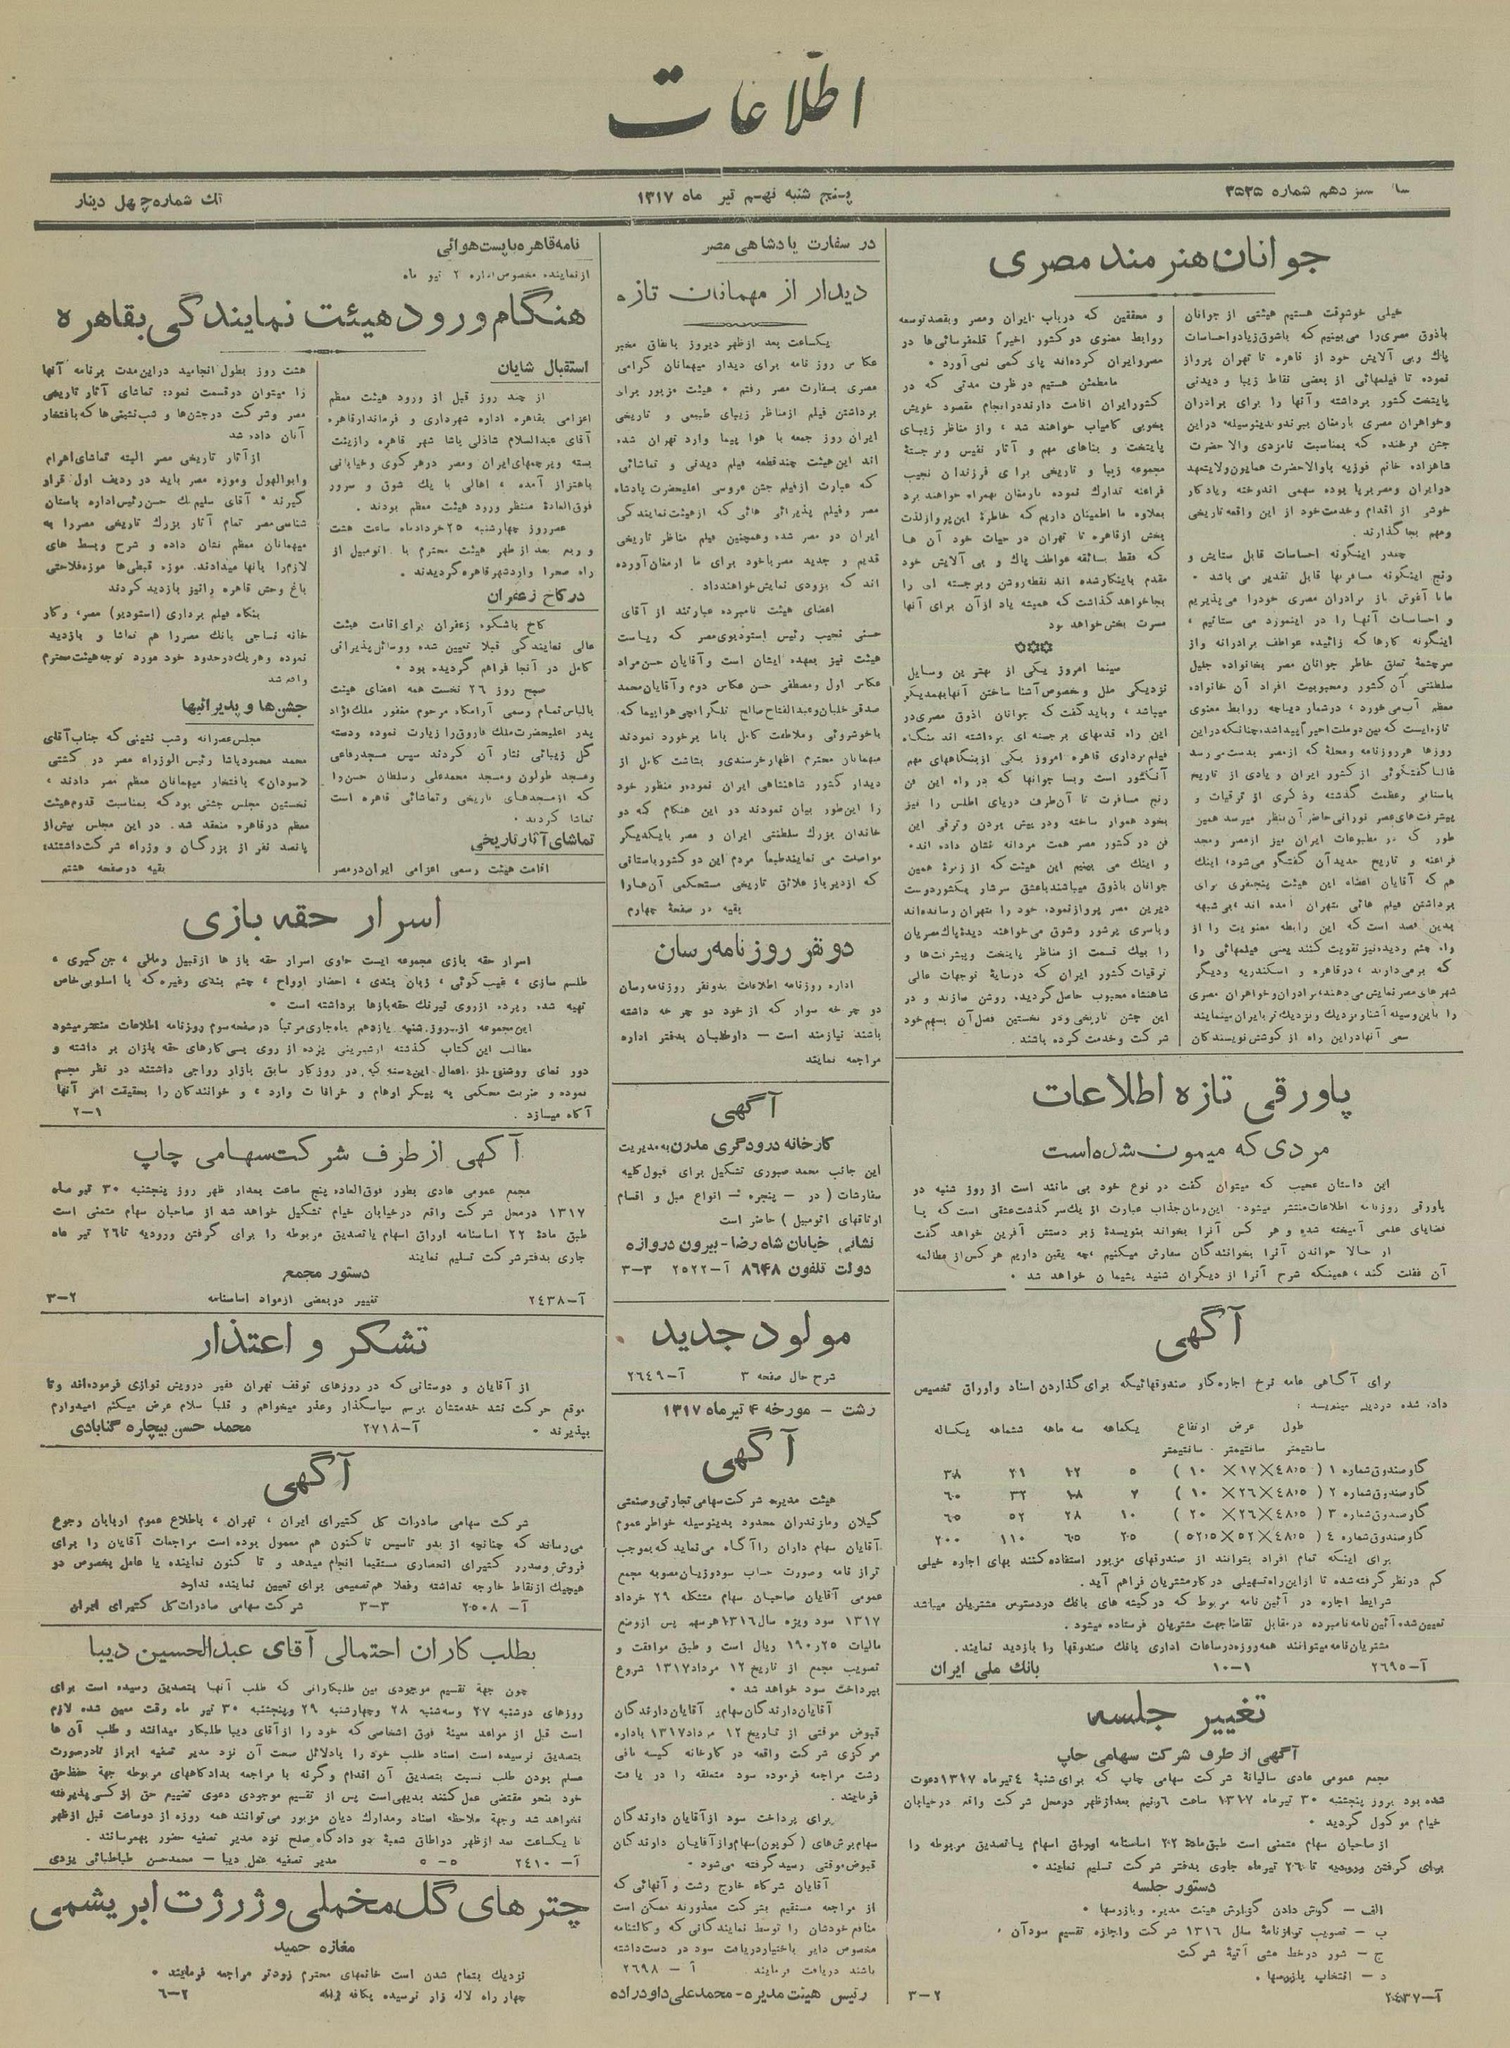 اطلاعات
سال سیزدهم شماره ۳۵۲۵
پنج شنبه نهم تیر ماه ۱۳۱۷
تك شماره چهل دینار
جوانان هنرمند مصری
خیلی خوشوقت هستیم هیئتی از جوانان
باذوق مصری را می‌بینیم که باشوق زیاد و احساسات
پاك و بی آلایش خود از قاهره تا تهران پرواز
نموده تا فیلمهائی از بعضی نقاط زیبا و دیدنی
پایتخت کشور برداشته و آنها را برای برادران
و خواهران مصری بارمغان ببرند و بدینوسیله در این
جشن فرخنده که بمناسبت نامزدی والاحضرت
شاهزاده خانم فوزیه با والاحضرت همایون ولایتعهد
در ایران و مصر برپا بوده سهمی اندوخته و یادگار
خوشی از اقدام و خدمت خود از این واقعه تاریخی
و مهم بجا گذارند .
چقدر اینگونه احساسات قابل ستایش و
رنج اینگونه مسافرتها قابل تقدیر می باشد •
ما با آغوش باز برادران مصری خود را می‌پذیریم
و احساسات آنها را در اینمورد می ستائیم ،
اینگونه کارها که زائیده عواطف برادرانه و از
سرچشمهٔ تعلق خاطر جوانان مصر بخانواده جلیل
سلطنتی آن کشور و محبوبیت افراد آن خانواده
معظم آب می‌خورد ، در شمار دیباچه روابط معنوی
تازه ایست که بین دو ملت اخیراً پیدا شد، چنانکه در این
روزها هر روزنامه و مجلهٔ که از مصر بدست می رسد
غالباً گفتگوئی از کشور ایران و یادی از تاریخ
باستانی و عظمت گذشته و ذکری از ترقیات و
پیشرفت‌های عصر نورانی حاضر آن بنظر میرسد همین
طور که در مطبوعات ایران نیز از مصر و مجد
فراعنه و تاریخ جدید آن گفتگو می‌شود، اینك
هم که آقایان اعضاء این هیئت پنجنفری برای
برداشتن فیلم هائی بتهران آمده اند ، بی‌شبهه
بدین قصد است که این رابطه معنویت را از
راه چشم و دیده نیز تقویت کنند یعنی فیلمهائی را
که برمی‌دارند ، در قاهره و اسکندریه و دیگر
شهرهای مصر نمایش می‌دهند، برادران و خواهران مصری
را باین وسیله آشنا و نزدیك و نزدیك تر بایران مینمایند
سعی آنها در این راه از کوشش نویسندگان
و محققین که در باب ایران و مصر و بقصد توسعه
روابط معنوی دو کشور اخیراً قلمفرسائی‌ها در
مصر و ایران کرده‌اند پای کمی نمی آورد •
ما مطمئن هستیم در ظرف مدتی که در
کشور ایران اقامت دارند در انجام مقصود خویش
بخوبی کامیاب خواهند شد ، و از مناظر زیبای
پایتخت و بناهای مهم و آثار نفیس و برجستهٔ
مجموعه زیبا و تاریخی برای فرزندان نجیب
فراعنه تدارك نموده بارمغان بهمراه خواهند برد
بعلاوه ما اطمینان داریم که خاطرهٔ این پرواز لذت
بخش از قاهره تا تهران در حیات خود آن ها
که فقط بسائقه عواطف پاك و بی آلایش خود
مقدم باینکار شده اند نقطه روشن و برجسته ای را
بجا خواهد گذاشت که همیشه یاد از آن برای آنها
مسرت بخش خواهد بود
سینما امروز یکی از بهترین وسایل
نزدیکی ملل و خصوص آشنا ساختن آنها بهمدیگر
میباشد ، و باید گفت که جوانان باذوق مصری در
این راه قدمهای برجسته ای برداشته اند بنگاه
فیلم برداری قاهره امروز یکی از بنگاههای مهم
آنکشور است و بسا جوانها که در راه این فن
رنج مسافرت تا آن طرف دریای اطلس را نیز
بخود هموار ساخته و در پیش بردن و ترقی این
فن در کشور مصر همت مردانه نشان داده اند •
و اینك می بینیم این هیئت که از زمرهٔ همین
جوانان باذوق میباشند باعشق سرشار بکشور دوست
دیرین مصر پرواز نموده، خود را بتهران رسانده‌اند
و باسری پرشور و شوق می‌خواهند دیدگان مصریان
را بیك قسمت از مناظر پایتخت و پیشرفت‌ها و
ترقیات کشور ایران که در سایهٔ توجهات عالی
شاهنشاه محبوب حاصل گردیده، روشن سازند و در
این جشن تاریخی و در نخستین فصل آن بسهم خود
شرکت و خدمت کرده باشند .
پاورقی تازه اطلاعات
مردی که میمون شده است
این داستان عجیب که میتوان گفت در نوع خود بی مانند است از روز شنبه در
پاورقی روزنامه اطلاعات منتشر میشود. این رمان جذاب عبارت از یك سرگذشت عشقی است که با
قضایای علمی آمیخته شده و هر کس آنرا بخواند بنویسندهٔ زبر دستش آفرین خواهد گفت
از حالا خواندن آنرا بخوانندگان سفارش میکنیم ، چه یقین داریم هر کس از مطالعه
آن غفلت کند ، همینکه شرح آنرا از دیگران شنید پشیمان خواهد شد •
آگهی
برای آگاهی عامه نرخ اجاره گاو صندوقهائیکه برای گذاردن اسناد و اوراق تخصیص
داده شده در ذیل مینویسد :
طول عرض ارتفاع یکماهه سه ماهه ششماهه یکساله
سانتیمتر سانتیمتر سانتیمتر
گاو صندوق شماره ۱ ( ۴۸٫۵ × ۱۷ × ۱۰ ) ۵ ۱۲ ۲۱ ۳۸
گاو صندوق شماره ۲ ( ۴۸٫۵ × ۲۶ × ۱۰ ) ۷ ۱۸ ۳۲ ۶۰
گاو صندوق شماره ۳ ( ۴۸٫۵ × ۲۶ × ۲۰ ) ۱۰ ۲۸ ۵۲ ۶۵
گاو صندوق شماره ۴ ( ۴۸٫۵ × ۵۲ × ۵۲٫۵ ) ۲۵ ۶۵ ۱۱۰ ۲۰۰
برای اینکه تمام افراد بتوانند از صندوقهای مزبور استفاده کنند بهای اجاره خیلی
کم در نظر گرفته شده تا از این راه تسهیلی در کار مشتریان فراهم آید .
شرایط اجاره در آئین نامه مربوط که در گیشه های بانك در دسترس مشتریان میباشد
تعیین شده آئین نامه نامبرده در مقابل تقاضا جهت مشتریان فرستاده میشود .
مشتریان نامه میتوانند همه روزه در ساعات اداری بانك صندوقها را بازدید نمایند .
آ-۲۶۹۵ ۱۰-۱ بانك ملی ایران
تغییر جلسه
آگهی از طرف شرکت سهامی چاپ
مجمع عمومی عادی سالیانهٔ شرکت سهامی چاپ که برای شنبهٔ ۴ تیر ماه ۱۳۱۷ دعوت
شده بود بروز پنجشنبه ۳۰ تیر ماه ۱۳۱۷ ساعت ۶ و نیم بعد از ظهر در محل شرکت واقعه در خیابان
خیام موکول گردید •
از صاحبان سهام متمنی است طبق مادهٔ ۲۰۲ اساسنامه اوراق اسهام یا تصدیق مربوطه را
برای گرفتن ورودیه تا ۲۶ تیر ماه جاری بدفتر شرکت تسلیم نمایند •
دستور جلسه
الف – گوش دادن گزارش هیئت مدیره و بازرسها •
ب – تصویب ترازنامهٔ سال ۱۳۱۶ شرکت و اجازه تقسیم سود آن •
ج – شور در خط مشی آتیهٔ شرکت
د – انتخاب بازرسها .
آ-۲۴۳۷ ۳-۲
در سفارت پادشاهی مصر
دیدار از مهمانان تازه
یکساعت بعد از ظهر دیروز باتفاق مخبر
عکاس روزنامه برای دیدار میهمانان گرامی
مصری بسفارت مصر رفتم • هیئت مزبور برای
برداشتن فیلم از مناظر زیبای طبیعی و تاریخی
ایران روز جمعه با هوا پیما وارد تهران شده
اند این هیئت چند قطعه فیلم دیدنی و تماشائی
که عبارت از فیلم جشن عروسی اعلیحضرت پادشاه
مصر و فیلم پذیرائی هائی که از هیئت نمایندگی
ایران در مصر شده و همچنین فیلم مناظر تاریخی
قدیم و جدید مصر با خود برای ما ارمغان آورده
اند که بزودی نمایش خواهند داد .
اعضای هیئت نامبرده عبارتند از آقای
حسنی نجیب رئیس استودیوی مصر که ریاست
هیئت نیز بعهده ایشان است و آقایان حسن مراد
عکاس اول و مصطفی حسن عکاس دوم و آقایان محمد
صدقی خلبان و عبدالفتاح صالح تلگرافچی هواپیما که
باخوشروئی و ملاطفت کامل باما برخورد نمودند
میهمانان محترم اظهار خرسندی و بشاشت کامل از
دیدار کشور شاهنشاهی ایران نموده و منظور خود
را این‌طور بیان نمودند در این هنگام که دو
خاندان بزرك سلطنتی ایران و مصر بایکدیگر
مواصلت می نمایند طبعاً مردم این دو کشور باستانی
که از دیر باز علائق تاریخی مستحکمی آن‌ها را
بقیه در صفحهٔ چهارم
دو نفر روزنامه رسان
اداره روزنامه اطلاعات بدو نفر روزنامه رسان
دو چرخه سوار که از خود دو چرخه داشته
باشند نیازمند است – داوطلبان بدفتر اداره
مراجعه نمایند
آگهی
کارخانه درودگری مدرن به مدیریت
این جانب محمد صبوری تشکیل برای قبول کلیه
سفارشات ( در – پنجره – انواع مبل و اقسام
اوتاقهای اتومبیل ) حاضر است
نشانی خیابان شاه رضا - بیرون دروازه
دولت تلفون ۸۶۴۸ آ-۲۵۲۲ ۳-۳
مولود جدید
شرح حال صفحه ۳ آ-۲۶۴۹
رشت – مورخه ۴ تیر ماه ۱۳۱۷
آگهی
هیئت مدیره شرکت سهامی تجارتی و صنعتی
گیلان و مازندران محدود بدینوسیله خواطر عموم
آقایان سهام داران را آگاه می نماید که بموجب
تراز نامه و صورت حساب سود و زیان مصوبه مجمع
عمومی آقایان صاحبان سهام متشکله ۲۹ خرداد
۱۳۱۷ سود ویژه سال ۱۳۱۶ هر سهم پس از وضع
مالیات ۱۹۰٫۲۵ ریال است و طبق موافقت و
تصویب مجمع از تاریخ ۱۲ مرداد ۱۳۱۷ شروع
بپرداخت سود خواهد شد •
آقایان دارندگان سهام و آقایان دارندگان
قبوض موقتی از تاریخ ۱۲ مرداد ۱۳۱۷ باداره
مرکزی شرکت واقعه در کارخانه کیسه بافی
رشت مراجعه فرموده سود متعلقه را دریافت
فرمایند .
برای پرداخت سود از آقایان دارندگان
سهام برش‌های (کوپون) سهام و از آقایان دارندگان
قبوض موقتی رسید گرفته می‌شود •
آقایان شرکاء خارج رشت و آنهائی که
از مراجعه مستقیم بشرکت معذورند ممکن است
منافع خودشان را توسط نمایندگانی که وکالتنامه
مخصوص دایر باختیار دریافت سود در دست داشته
باشند دریافت فرمایند . آ – ۲۶۹۸
رئیس هیئت مدیره - محمد علی داودزاده
نامه قاهره با پست هوائی
از نماینده مخصوص اداره ۲ تیر ماه
هنگام ورود هیئت نمایندگی بقاهره
استقبال شایان
از چند روز قبل از ورود هیئت معظم
اعزامی بقاهره اداره شهرداری و فرماندار قاهره
آقای عبدالسلام شاذلی پاشا شهر قاهره را زینت
بسته و پرچمهای ایران و مصر در هر کوی و خیابانی
باهتزاز آمده ، اهالی با یك شوق و سرور
فوق العادهٔ منتظر ورود هیئت معظم بودند .
عصر روز چهارشنبه ۲۵ خرداد ماه ساعت هشت
و ربع بعد از ظهر هیئت محترم با اتومبیل از
راه صحرا وارد شهر قاهره گردیدند .
در کاخ زعفران
کاخ باشکوه زعفران برای اقامت هیئت
عالی نمایندگی قبلا تعیین شده و وسائل پذیرائی
کامل در آنجا فراهم گردیده بود •
صبح روز ۲۶ نخست همه اعضای هیئت
بالباس تمام رسمی آرامگاه مرحوم مغفور ملك فؤاد
پدر اعلیحضرت ملك فاروق را زیارت نموده و دسته
گل زیبائی نثار آن کردند سپس مسجد رفاعی
و مسجد طولون و مسجد محمد علی و سلطان حسن را
که از مسجدهای تاریخی و تماشائی قاهره است
تماشا کردند .
تماشای آثار تاریخی
اقامت هیئت رسمی اعزامی ایران در مصر
هشت روز بطول انجامید در این مدت برنامه آنها
را میتوان دو قسمت نمود: تماشای آثار تاریخی
مصر و شرکت در جشن‌ها و شب‌نشینی‌ها که بافتخار
آنان داده شد
از آثار تاریخی مصر البته تماشای اهرام
و ابوالهول و موزه مصر باید در ردیف اول قرار
گیرند • آقای سلیم بك حسن رئیس اداره باستان
شناسی مصر تمام آثار بزرك تاریخی مصر را به
میهمانان معظم نشان داده و شرح و بسط های
لازم را بآنها میدادند. موزه قبطی‌ها موزه فلاحتی
باغ وحش قاهره را نیز بازدید کردند
بنگاه فیلم برداری (استودیو) مصر، و کار
خانه نساجی بانك مصر را هم تماشا و بازدید
نموده و هر یك در حدود خود مورد توجه هیئت محترم
واقع شد
جشن‌ها و پذیرائیها
مجلس عصرانه و شب نشینی که جناب آقای
محمد محمود پاشا رئیس الوزراء مصر در کشتی
«سودان» بافتخار میهمانان معظم مصر دادند ،
نخستین مجلس جشنی بود که بمناسبت قدوم هیئت
معظم در قاهره منعقد شد . در این مجلس بیش از
پانصد نفر از بزرگان و وزراء شرکت داشتند،
بقیه در صفحه هشتم
اسرار حقه بازی
اسرار حقه بازی مجموعه ایست حاوی اسرار حقه باز ها از قبیل رمالی ، جن گیری ،
طلسم سازی ، غیب گوئی ، زبان بندی ، احضار ارواح ، چشم بندی و غیره که با اسلوبی خاص
تهیه شده و پرده از روی نیرنك حقه بازها برداشته است •
این مجموعه از روز شنبه یازدهم ماه جاری مرتباً در صفحه سوم روزنامه اطلاعات منتشر میشود
مطالب این کتاب گذشته از شیرینی پرده از روی بسی کارهای حقه بازان بر داشته و
دور نمای روشنی از اعمال این دسته که در روزگار سابق بازار رواجی داشتند در نظر مجسم
نموده و ضربت محکمی به پیکر اوهام و خرافات وارد ، و خوانندگان را بحقیقت امر آنها
آگاه میسازد . ۲-۱
آگهی از طرف شرکت سهامی چاپ
مجمع عمومی عادی بطور فوق العاده پنج ساعت بعد از ظهر روز پنجشنبه ۳۰ تیر ماه
۱۳۱۷ در محل شرکت واقع در خیابان خیام تشکیل خواهد شد از صاحبان سهام متمنی است
طبق مادهٔ ۲۲ اساسنامه اوراق اسهام یا تصدیق مربوطه را برای گرفتن ورودیه تا ۲۶ تیر ماه
جاری بدفتر شرکت تسلیم نمایند
دستور مجمع
تغییر در بعضی از مواد اساسنامه
آ-۲۴۳۸ ۳-۲
تشکر و اعتذار
از آقایان و دوستانی که در روزهای توقف تهران فقیر درویش نوازی فرموده‌اند و تا
موقع حرکت نشد خدمتشان برسم سپاسگذار و عذر میخواهم و قلباً سلام عرض میکنم امیدوارم
بپذیرند • آ-۲۷۱۸ محمد حسن بیچاره گنابادی
آگهی
شرکت سهامی صادرات کل کتیرای ایران ، تهران ، باطلاع عموم اربابان رجوع
می‌رساند که چنانچه از بدو تاسیس تاکنون هم معمول بوده است مراجعات آقایان را برای
فروش و صدور کتیرای انحصاری مستقیماً انجام میدهد و تا کنون نماینده یا عامل بخصوص در
هیچیك از نقاط خارجه نداشته و فعلا هم تصمیمی برای تعیین نماینده ندارد
آ- ۲۵۰۸ ۳-۳ شرکت سهامی صادرات کل کتیرای ایران
بطلب کاران احتمالی آقای عبدالحسین دیبا
چون جهة تقسیم موجودی بین طلبکارانی که طلب آنها بتصدیق رسیده است برای
روزهای دوشنبه ۲۷ و سه شنبه ۲۸ و چهارشنبه ۲۹ و پنجشنبه ۳۰ تیر ماه وقت معین شده لازم
است قبل از مواعد معینهٔ فوق اشخاصی که خود را از آقای دیبا طلبکار میدانند و طلب آن ها
بتصدیق نرسیده است اسناد طلب خود را با دلائل صحت آن نزد مدیر تصفیه ابراز تا در صورت
مسلم بودن طلب نسبت بتصدیق آن اقدام و گرنه با مراجعه بدادگاههای مربوطه جهة حفظ حق
خود بنحو مقتضی عمل کنند بدیهی است پس از تقسیم موجودی دعوی تضییع حق از کسی پذیرفته
نخواهد شد وجهة ملاحظه اسناد و مدارك دیان مزبور می‌توانند همه روزه از دو ساعت قبل از ظهر
تا یکساعت بعد از ظهر در اطاق شعبهٔ دو دادگاه صلح نزد مدیر تصفیه حضور بهمرسانند .
آ- ۲۴۱۰ ۵-۵ مدیر تصفیه عمل دیبا – محمد حسن طباطبائی یزدی
چترهای گل مخملی و ژرژت ابریشمی
مغازه حمید
نزدیك بتمام شدن است خانمهای محترم زودتر مراجعه فرمایند •
چهار راه لاله زار نرسیده بکافه ۶-۲